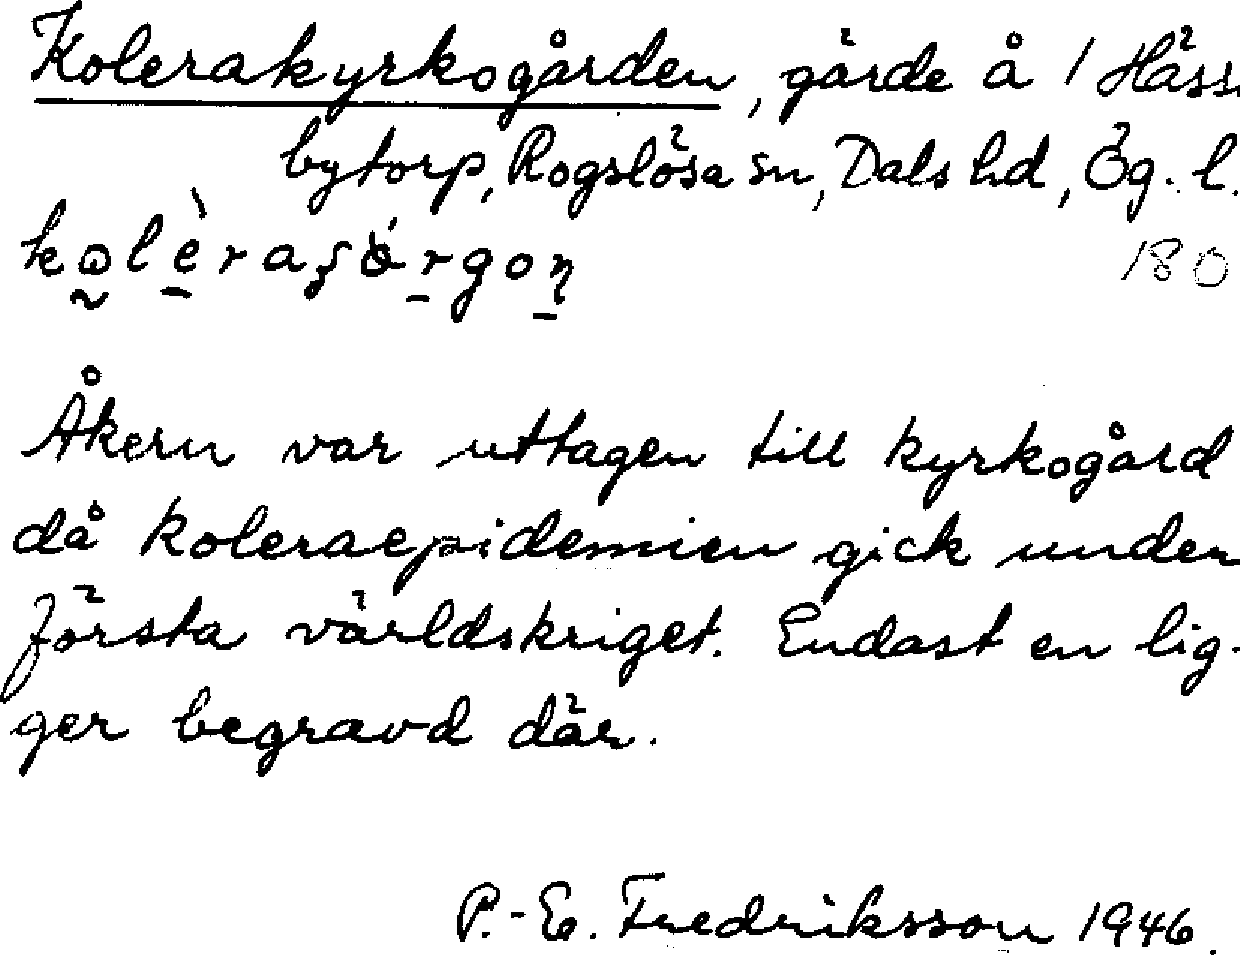 Kolerakyrkogården, gärde å 1 Häss-
bytorp, Rogslösa sn, Dals hd, Ög. l.
180
Åkern var uttagen till kyrkogård
då koleraepidemien gick under
första världskriget. Endast en lig-
ger begravd där.
P.-E. Fredriksson 1946.